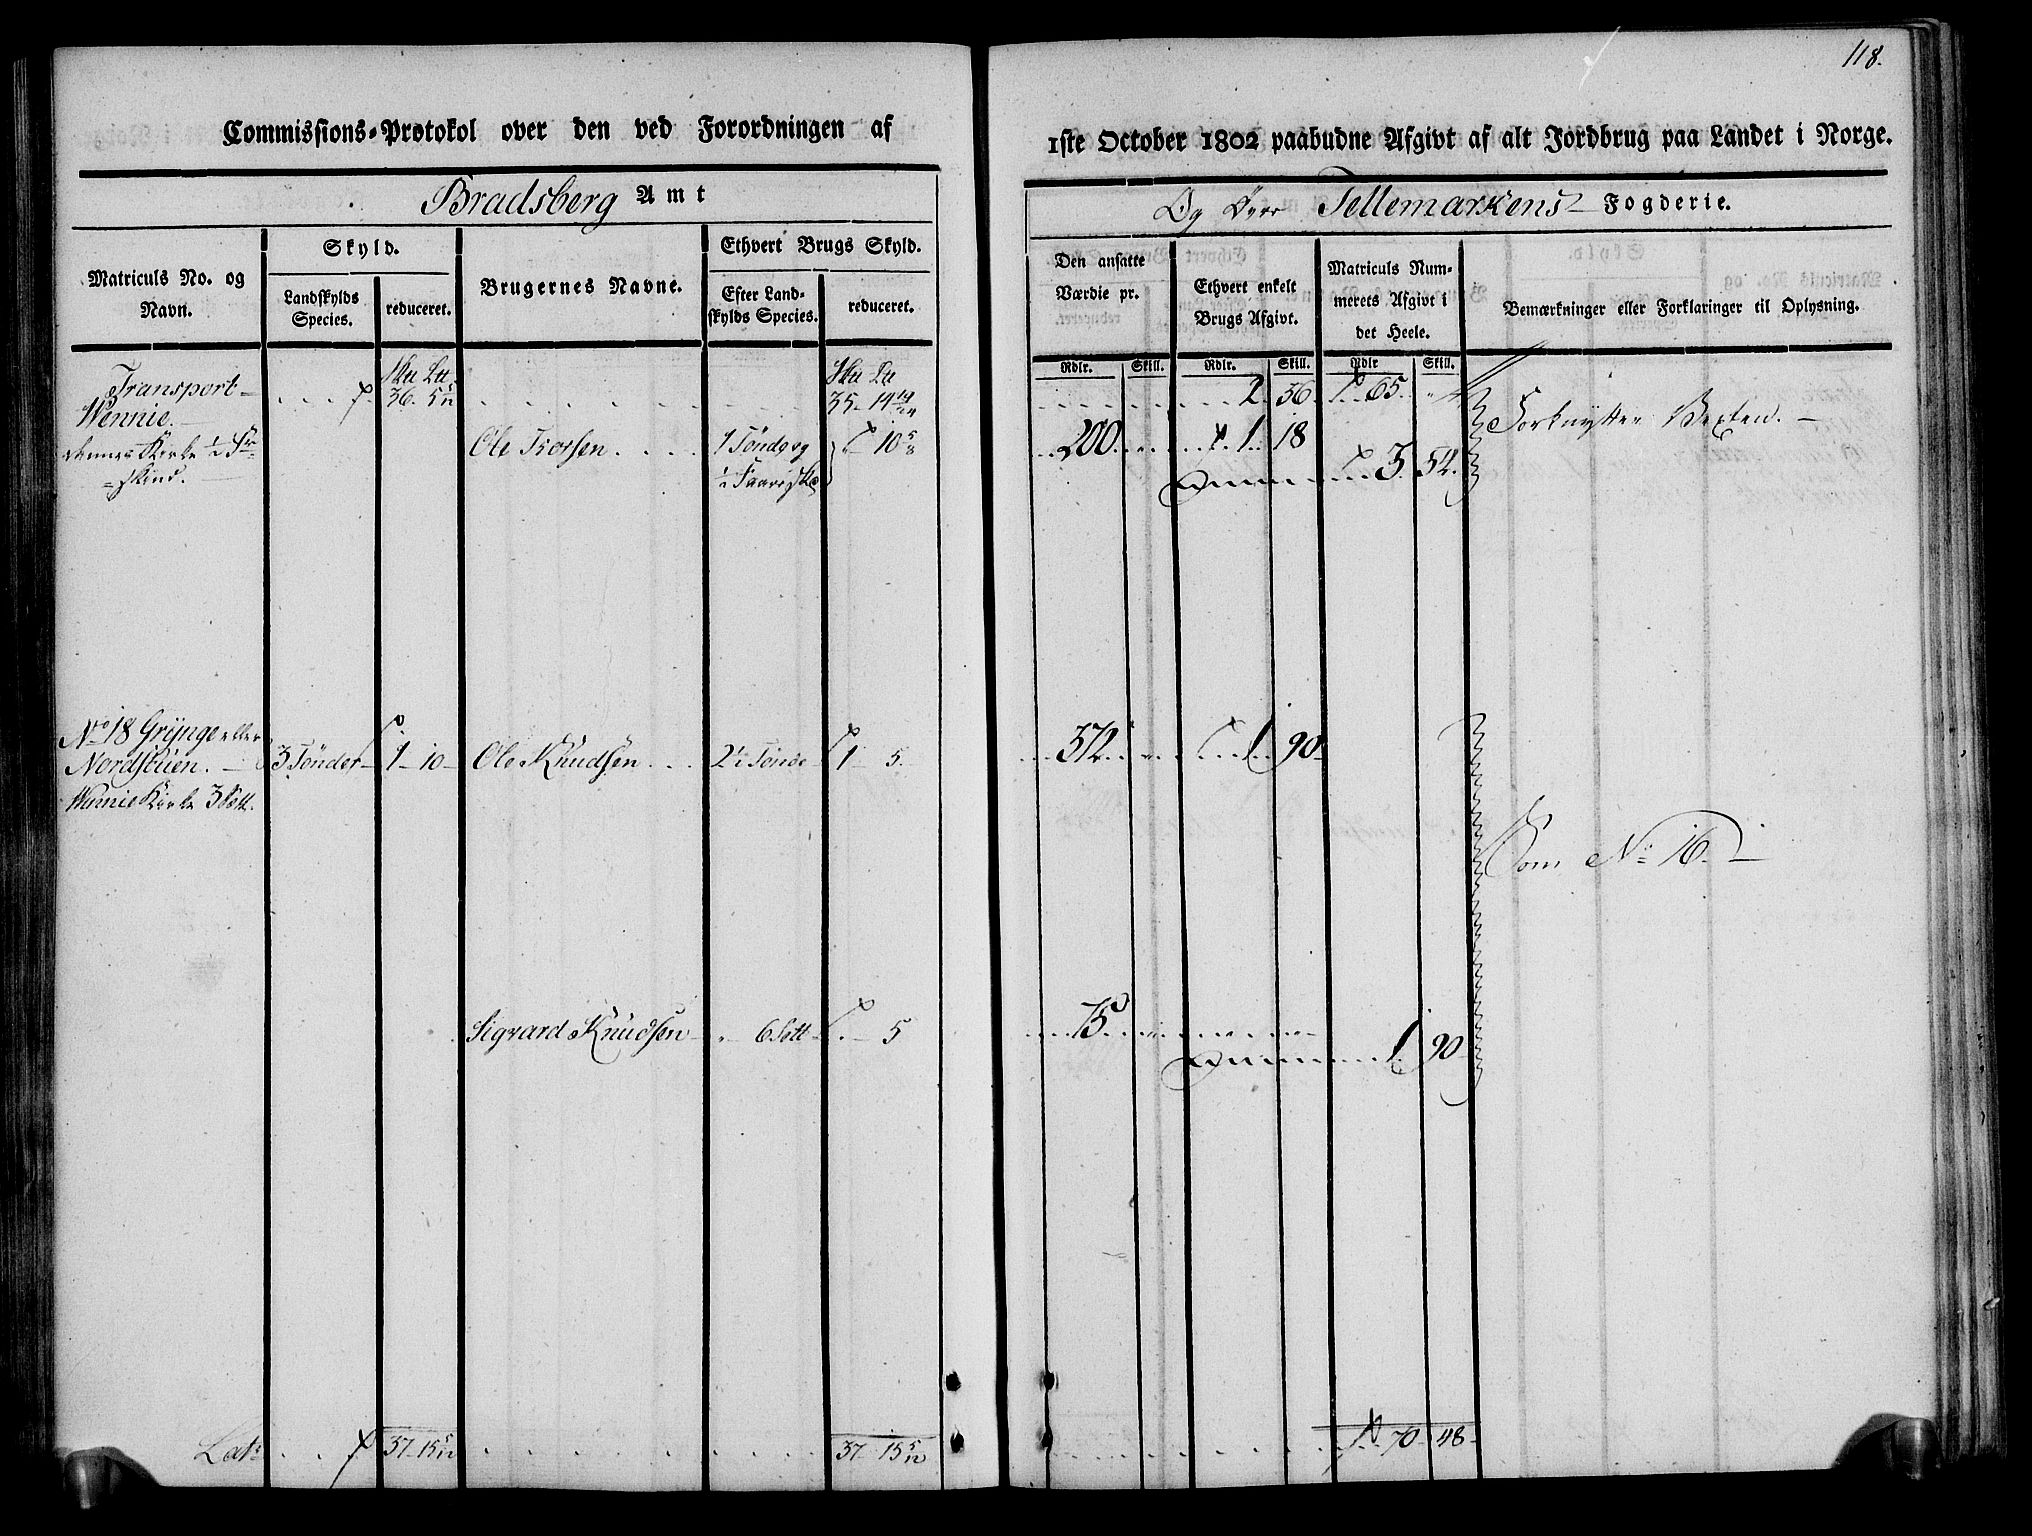 118.
Commissions-Protokol over den ved Forordningen af
1ste October 1802 paabudne Afgivt af alt Jordbrug paa Landet i Norge.
Bradsberg Amt
Og Tellemarkens Fogderie.
Matriculs No. og Navn.
Skyld.
Landskylds Species.
reduceret.
Brugernes Navne.
Ethvert Brugs Skyld.
Efter Landskylds Species.
reduceret.
Den ansatte Værdie pr.
Rdlr. Skill.
Ethvert enkelt Brugs Afgivt.
Rdlr. Skill.
Matriculs Nummerets Afgivt i det Heele.
Rdlr Skill.
Bemærkninger eller Forklaringer til Oplysning.
Transport 36. 5 5/12 35. 14 19/24 2. 36 65.
Wennie.
Kirke 1/2 skind. Ole 1 Tønde og 10 5/8 200 1. 18
3. 54.
No 18 Grÿnge eller
Nordstuen. 3 Tønder 1 10 Ole Knudsen 2 1/2 Tønde 1 5 372 1 90
Wennie Kirke 3 Sætt.
Som No 16.
Sigvard Knudsen 6 Sætt 5 75
1. 90
Lats 37 15 5/12 37 15 5/12 70 48